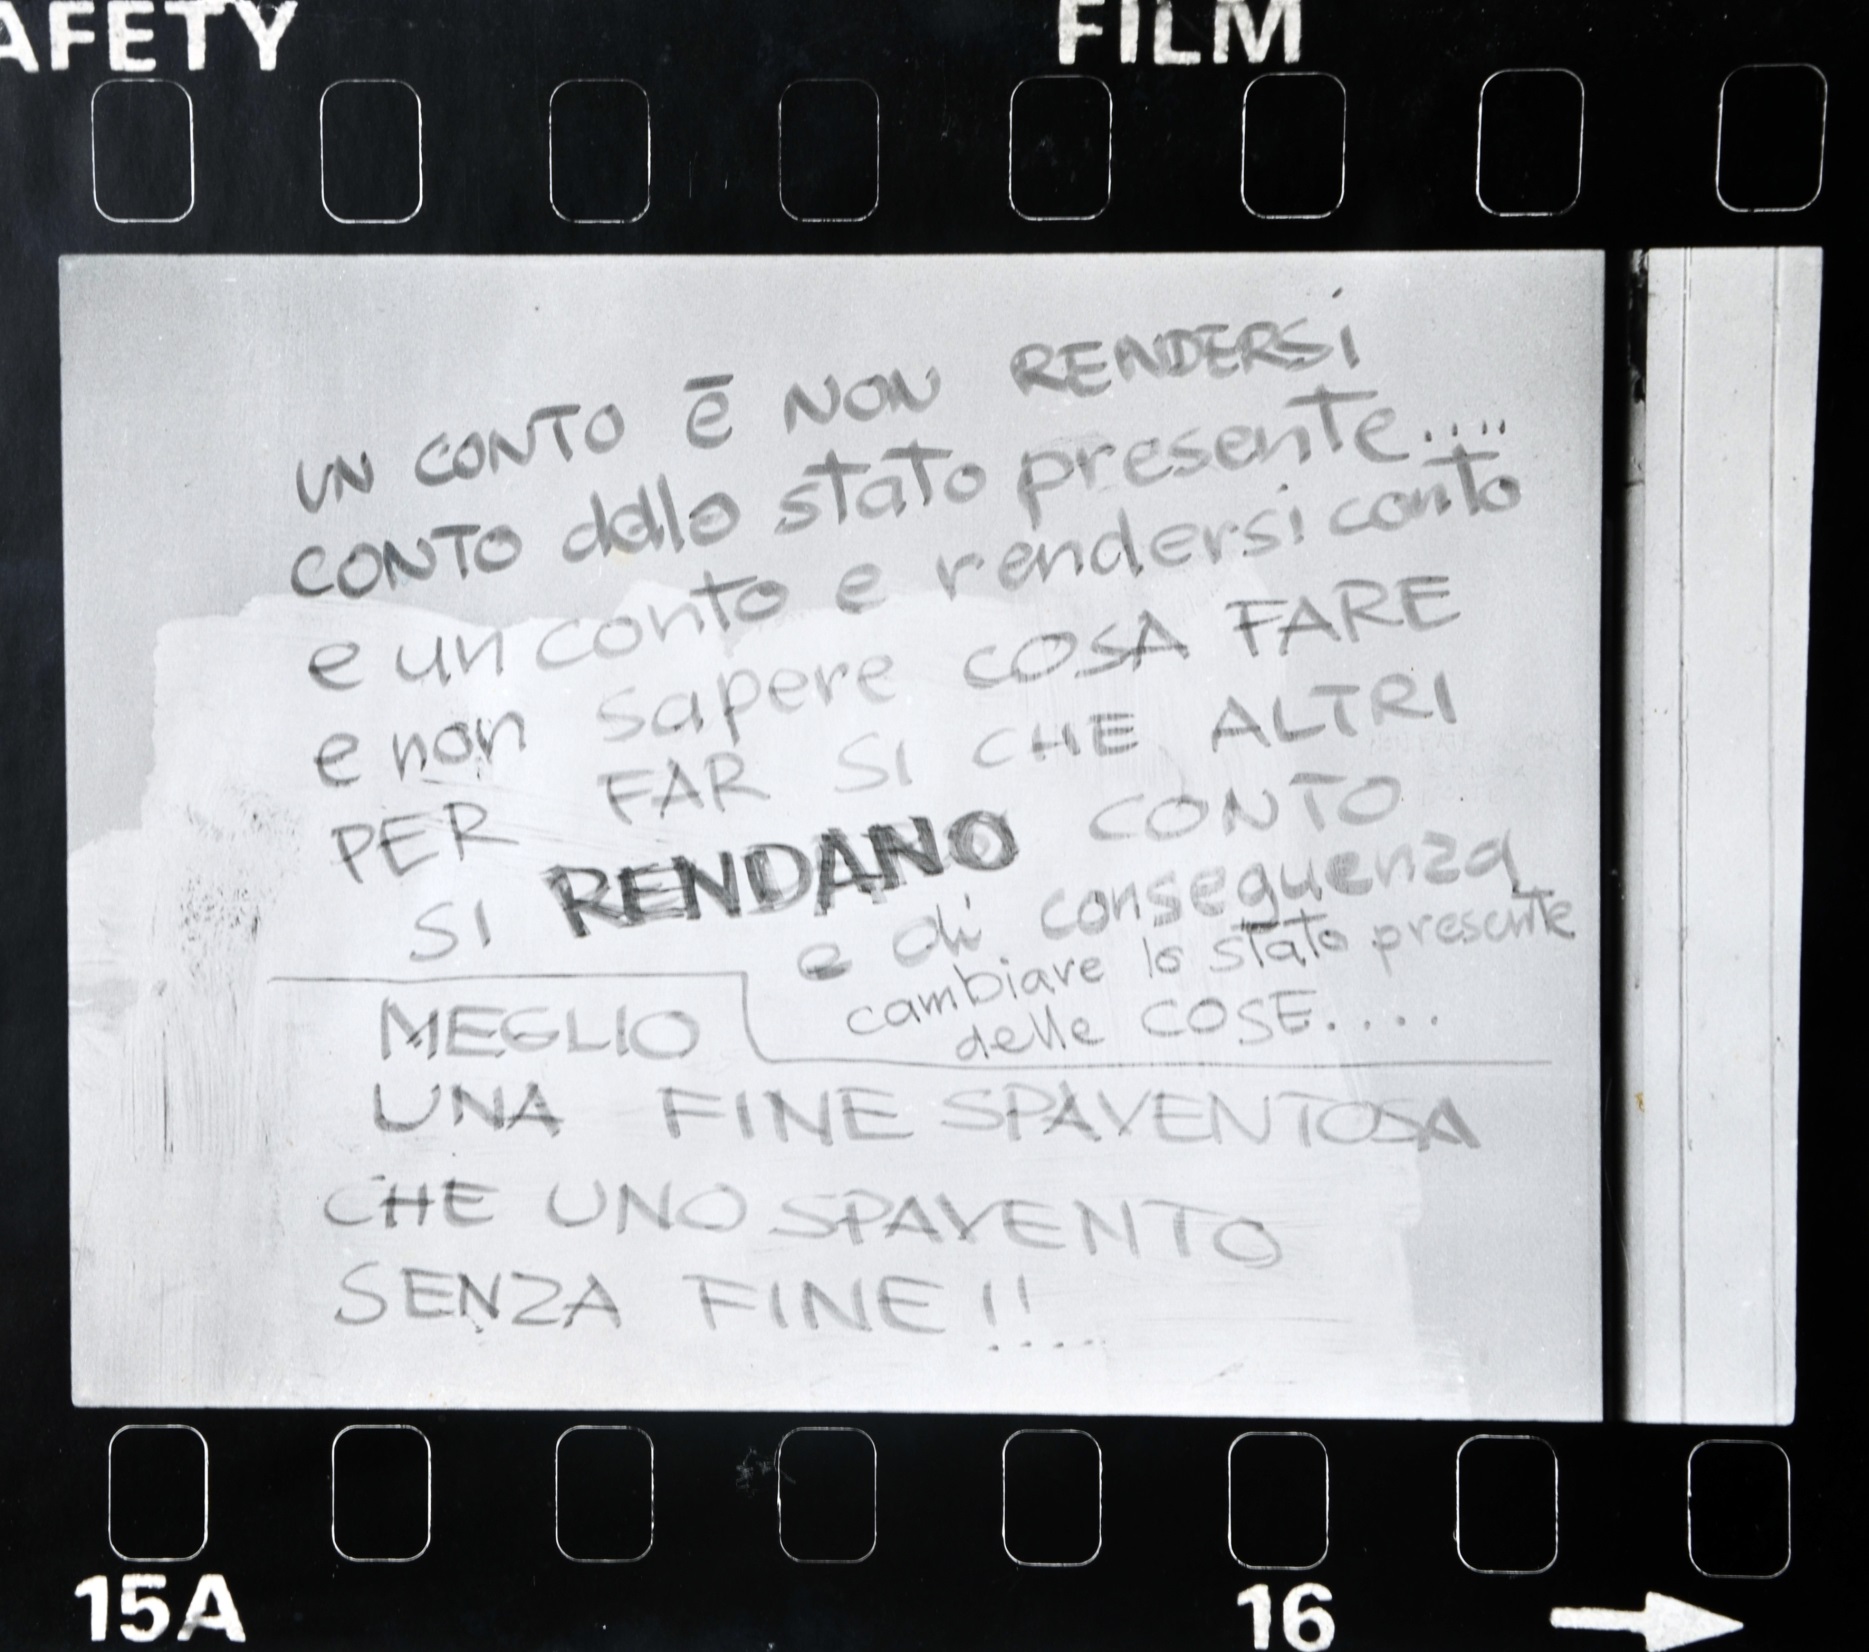 AFETY FILM
UN CONTO ē NON RENDERSi
CONTO dello stato presente.....
e un conto e rendersi conto
e non sapere COSA FARE
PER FAR SI CHE ALTRI
SI RENDANO CONTO
e di conseguenza
cambiare lo stato presente
delle COSE....
MEGLIO
UNA FINE SPAVENTOSA
CHE UNO SPAVENTO
SENZA FINE!!....
15A 16